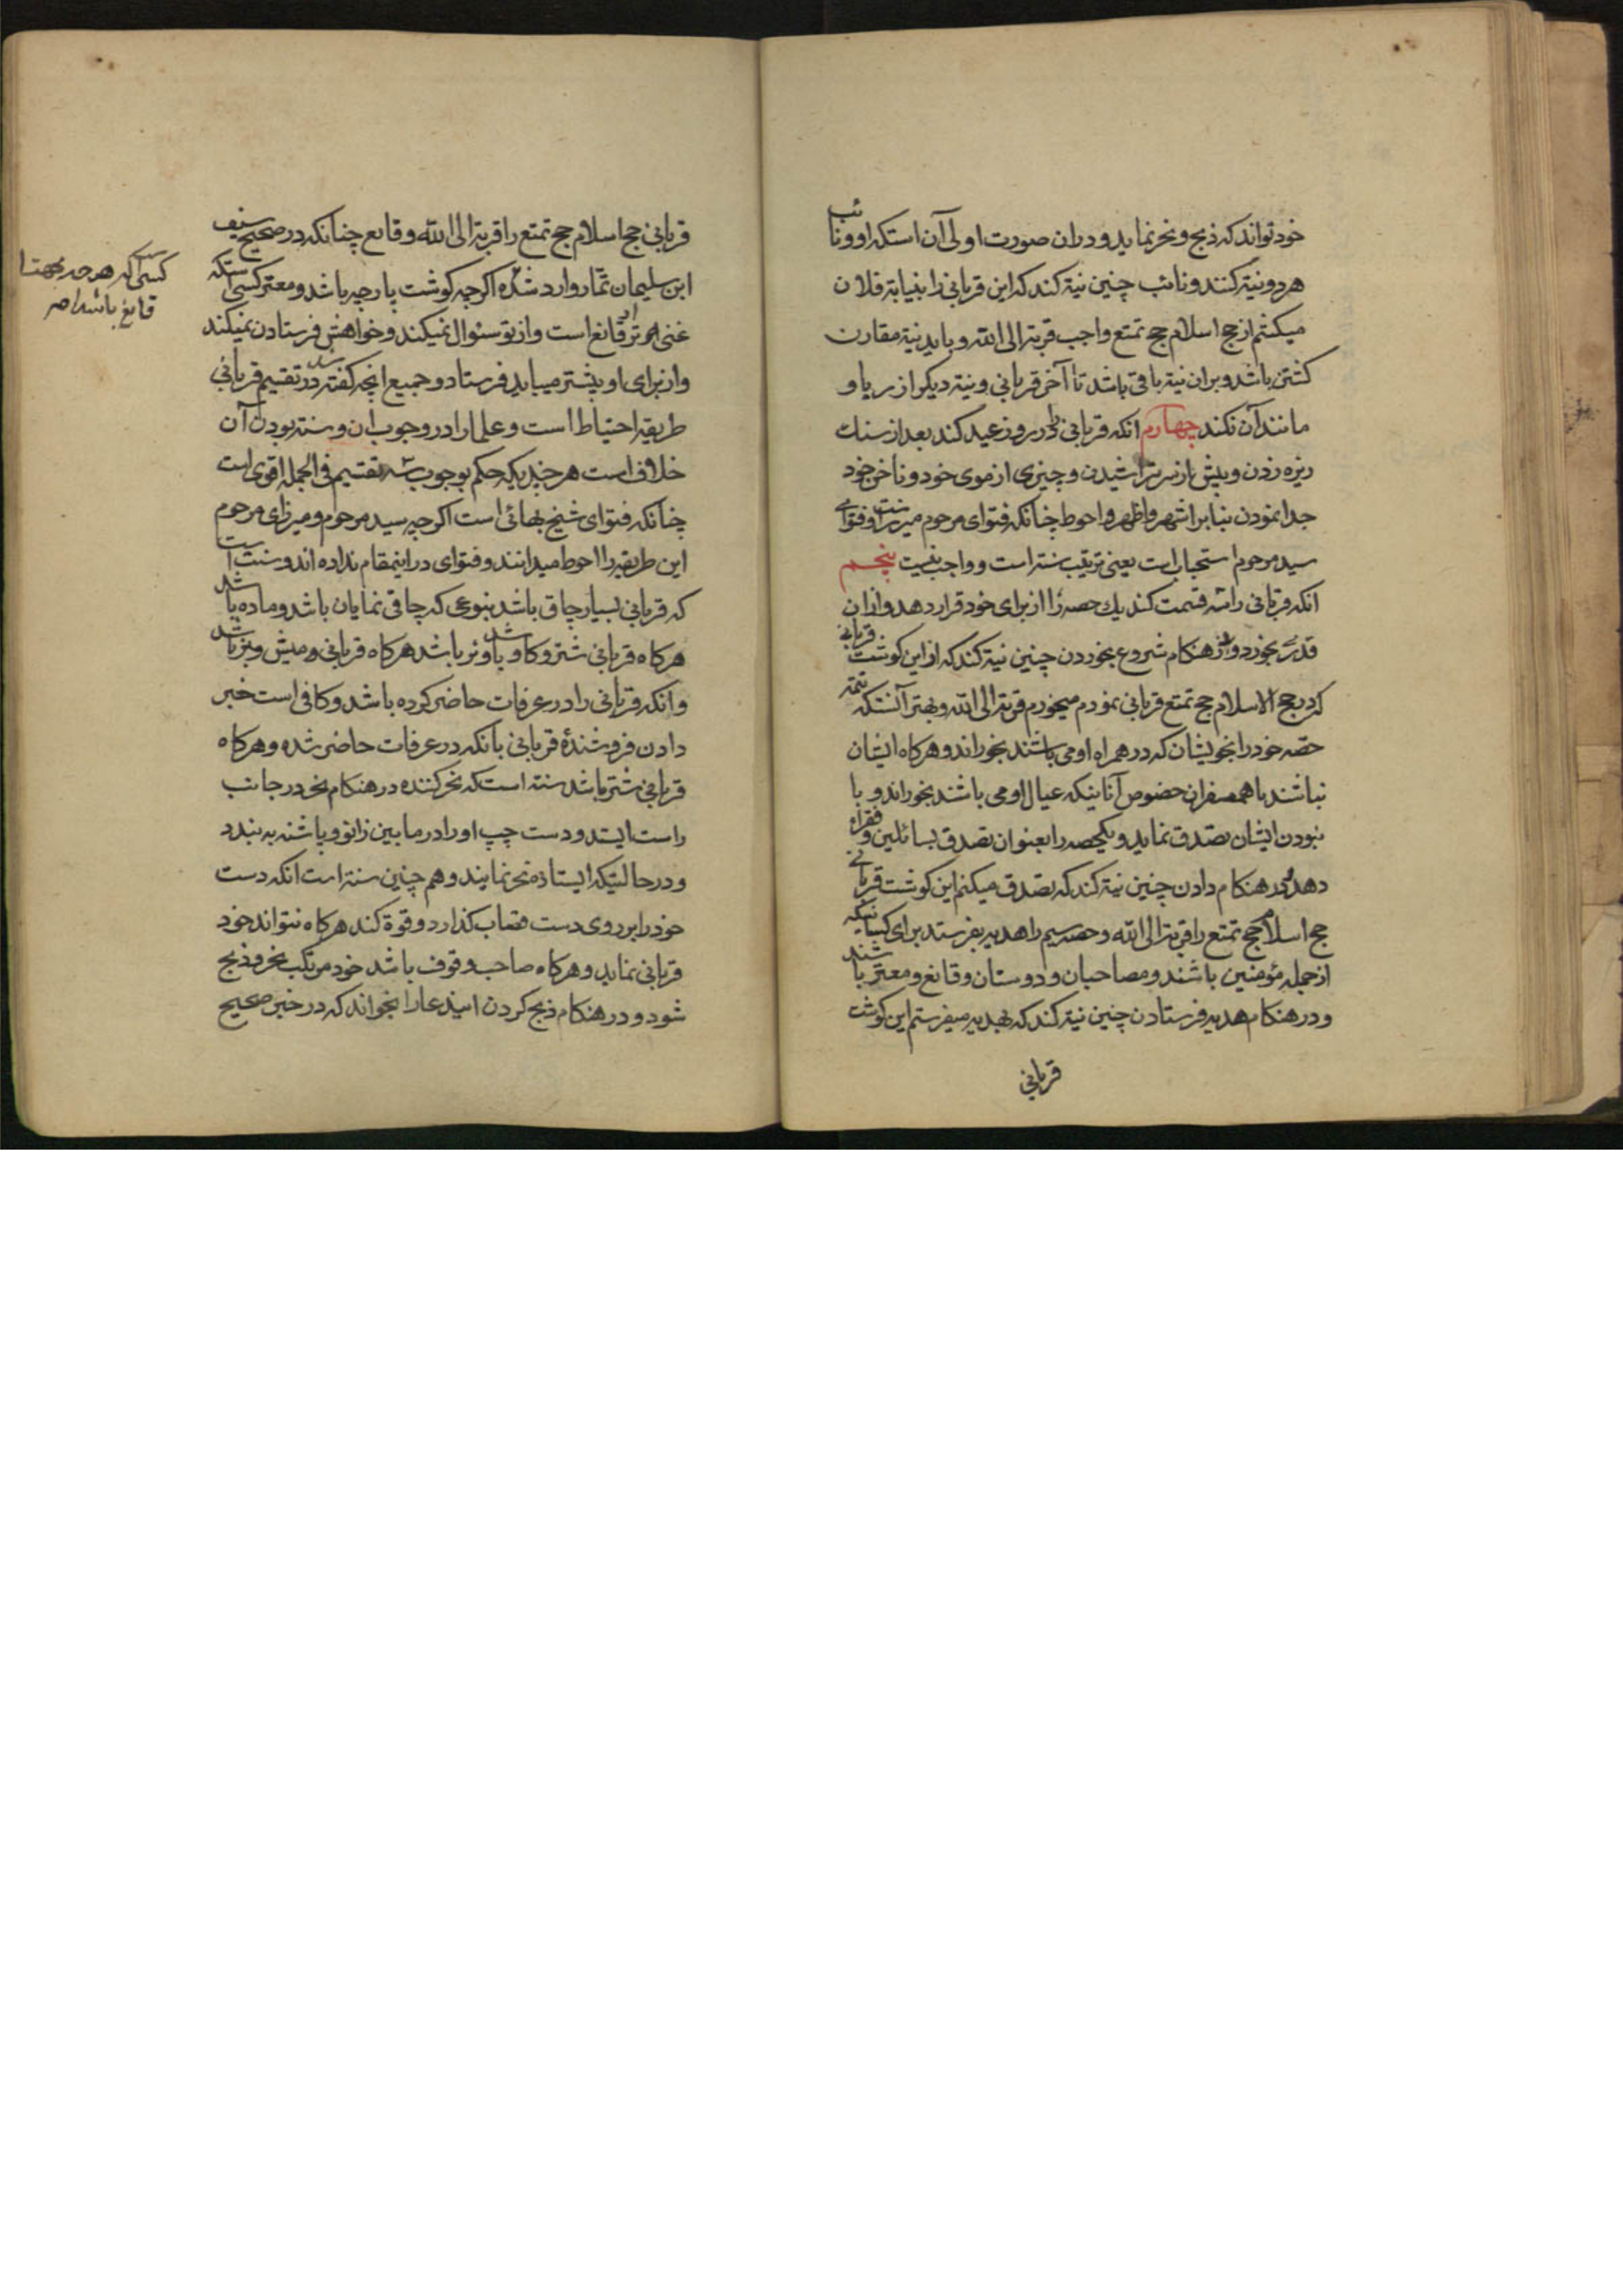 خود تواند که ذبح و نحر نماید و دران صورت اولی آن است که او و نائب
هر دو نیة کنند و نائب چنین نیة کند که این قربانی را بنیابة فلان
میکشم از حج اسلام حج تمتع واجب قربة الی الله و باید نیة مقارن
کشتن باشد و بران نیة باقی باشد تا آخر قربانی و نیة دیگر از ریا و
مانند آن نکند چهارم انکه قربانی را در روز عید کند بعد از سنك
ریزه زدن و پیش از سر تراشیدن و چیزی از موی خود و ناخن خود
جدا نمودن بنابر اشهر و اظهر و احوط چنانکه فتوای مرحوم میرزاست و فتوای
سید مرحوم استحباب است یعنی ترتیب سنة است و واجب نیست پنجم
انکه قربانی را سه قسمت کند یك حصه را از برای خود قرار دهد و ازان
قدری بخورد و در هنکام شروع بخوردن چنین نیة کند که از این کوشت قربانی
که در حج الاسلام حج تمتع قربانی نمودم میخورم قربة الی الله و بهتر آنستکه تتمه
حصه خود را بخویشان که در همراه او می باشند بخوراند و هرکاه ایشان
نباشند باهمسفران خصوص آنانیکه عیال او می باشند بخوراند و با
نبودن ایشان تصدق نماید و یکحصه را بعنوان تصدق بسائلین و فقراء
دهد و در هنکام دادن چنین نیة کند که تصدق میکنم این کوشت قربانی
حج اسلام حج تمتع را قربة الی الله و حصه سیم را هدیه بفرستد برای کسانیکه
از جمله مؤمنین باشند و مصاحبان و دوستان و قانع و معتر باشند
و در هنکام هدیه فرستادن چنین نیة کند که بهدیه میفرستم این کوشت
قربانی
قربانی حج اسلام حج تمتع را قربة الی الله و قانع چنانکه در صحیح سیف
ابن سلیمان تمار وارد شده اکرچه کوشت پارچه باشد و معتر کسی استکه
غنی تر از قانع است و از تو سئوال نمیکند و خواهش فرستادن نمیکند
و از برای او بیشتر میباید فرستاد و جمیع انچه کفته شد در تقسیم قربانی
طریقه احتیاط است و علما را در وجوب ان و سنة بودن آن
خلاف است هر چند یکه حکم بوجوب سه تقسیم فی الجمله اقوی است
چنانکه فتوای شیخ بهائی است اکرچه سید مرحوم و میرزای مرحوم
این طریقه را احوط میدانند و فتوای در اینمقام نداده اند و سنت است
که قربانی بسیار چاق باشد بنوعی که چاقی نمایان باشد و ماده باشد
هرکاه قربانی شتر و کاو باشد و نر باشد هرکاه قربانی و میش و بز باشد
و انکه قربانی را در عرفات حاضر کرده باشد و کافی است خبر
دادن فروشندهٔ قربانی بانکه در عرفات حاضر شده و هرکاه
قربانی شتر باشد سنة است که نحر کننده در هنکام نحر در جانب
راست ایستد و دست چپ او را در مابین زانو و پاشنه به بندد
و در حالتیکه ایستاده نحر نمایند و هم چنین سنة است انکه دست
خود را بر روی دست قصاب کذارد و قوة کند هرکاه نتواند خود
قربانی نماید و هرکاه صاحب وقوف باشد خود مرتکب نحر و ذبح
شود و در هنکام ذبح کردن ایندعا را بخواند که در خبر صحیح
کسی است که هر چه بدهند
قانع باشد